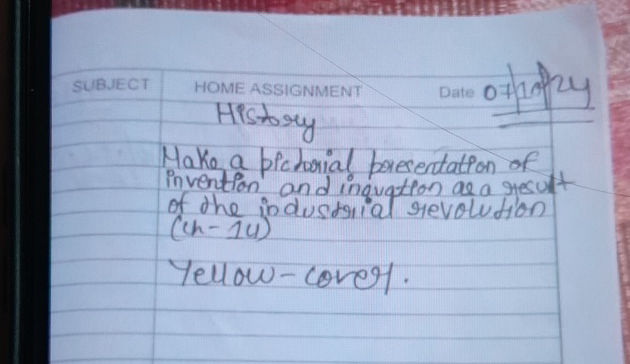 SUBJECT HOME ASSIGNMENT Date 07/10/24
History
Make a pictorial presentation of
invention and inovation as a result
of the industrial revolution
(ch-14)
Yellow-cover.